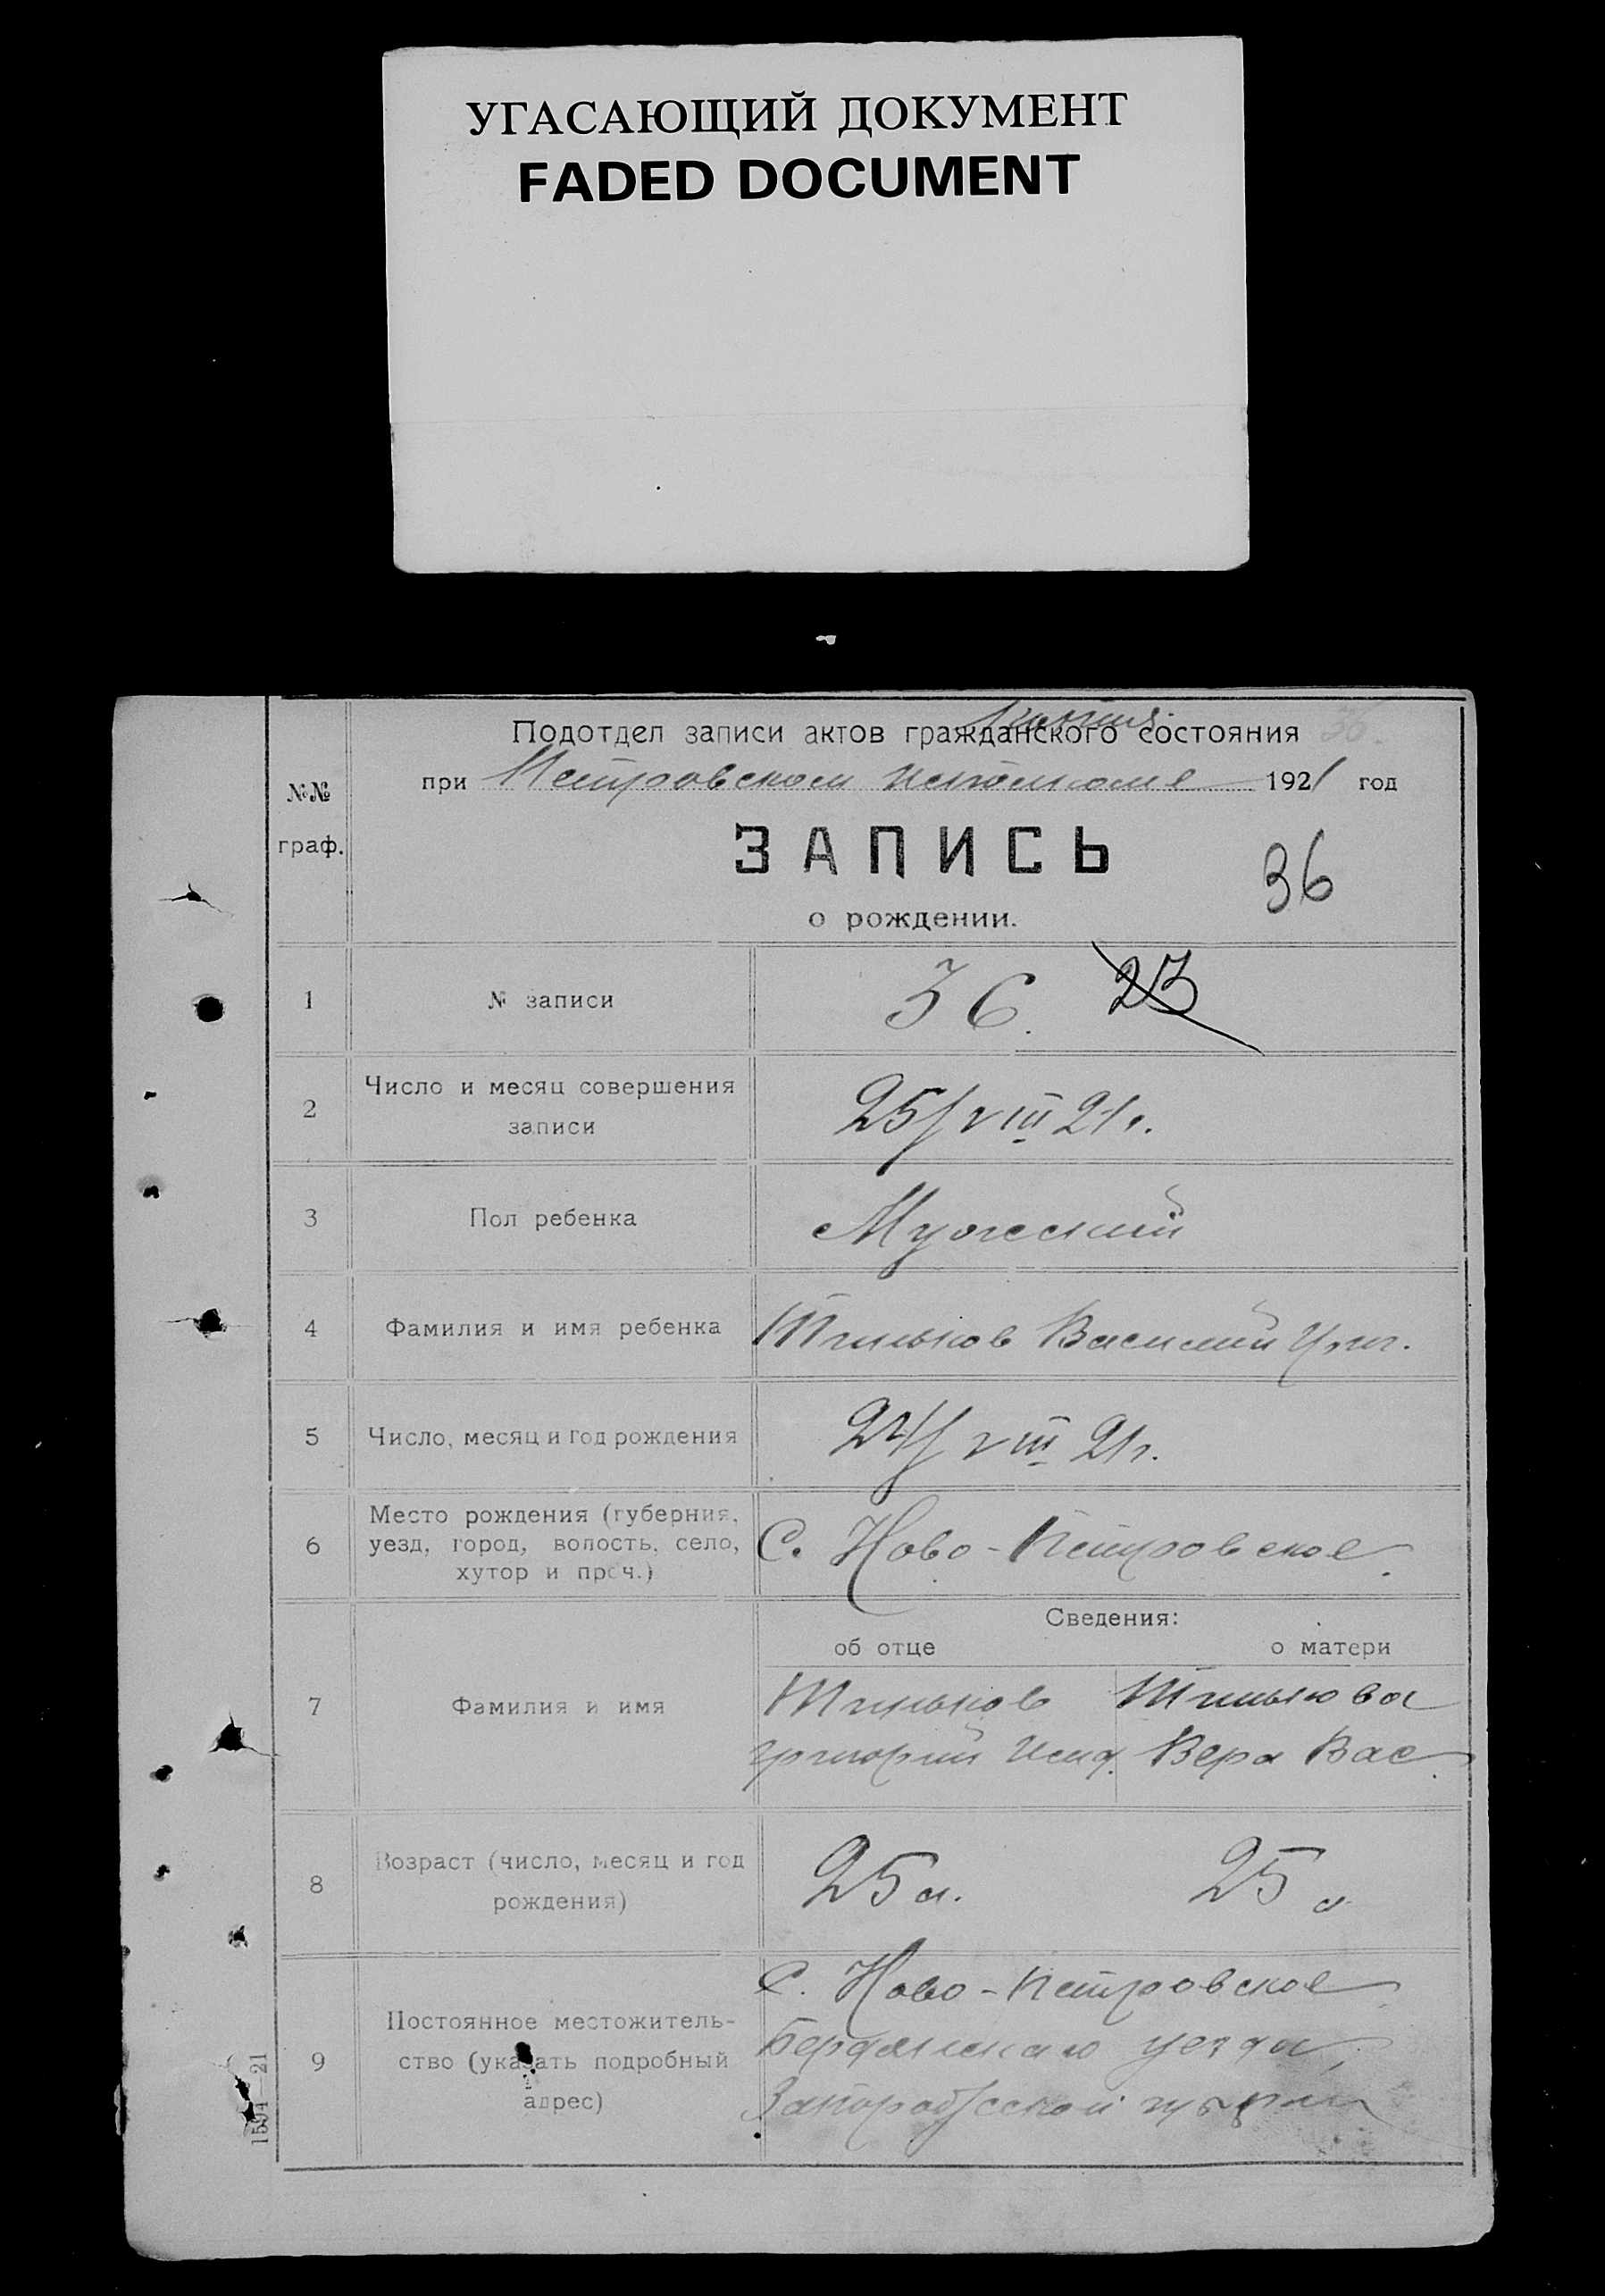 УГАСАЮЩИЙ ДОКУМЕНТ
FADED DOCUMENT
Подотдел записи актов гражданского состояния 36.
при Петровском исполкоме 1921 год
№№
граф.
ЗАПИСЬ
36
о рождении.
1 № записи 36. 23
2 Число и месяц совершения
записи
25/VIII 21 г.
3 Пол ребенка Мужеский
4 Фамилия и имя ребенка Василий Григ.
5 Число, месяц и год рождения 24/VIII 21 г.
6 Место рождения (губерния,
уезд, город, волость, село,
хутор и проч.)
С. Ново-Петровское
Сведения:
об отце о матери
7 Фамилия и имя
Григорий
Вера Вас.
8 Возраст (число, месяц и год
рождения)
25 л. 25 л.
9 Постоянное местожитель-
ство (указать подробный
адрес)
С. Ново-Петровское
Бердянского уезда,
Запорожской губернии
1594—21